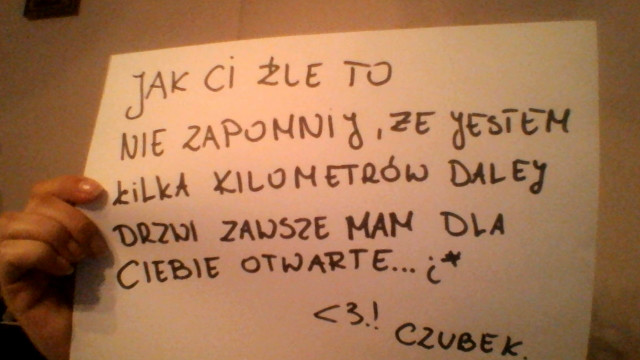 JAK CI ŹLE TO
NIE ZAPOMNIJ, ŻE JESTEM
KILKA KILOMETRÓW DALEJ
DRZWI ZAWSZE MAM DLA
CIEBIE OTWARTE... ;*
<3.!
CZUBEK.